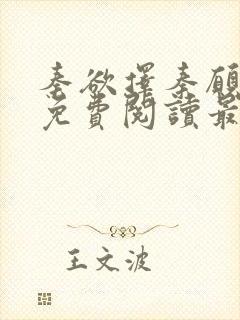 秦欲擇秦願
免費閱讀最
王文波